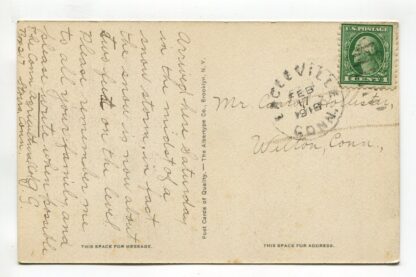 Arrived here Saturday
in the midst of a
snow storm, in fact
the snow is now about
two feet on the level
Please remember me
to all your family and
please write when possible
Post Cards of Quality. — The Albertype Co., Brooklyn, N. Y.
U.S. POSTAGE
1 CENT 1
EAGLEVILLE
FEB
17
CONN.
Mr.
Willton, Conn.
THIS SPACE FOR MESSAGE.
THIS SPACE FOR ADDRESS.